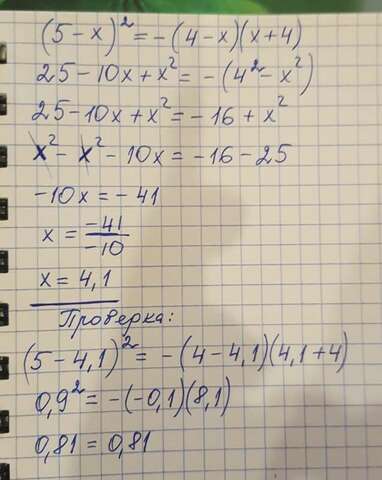 (5-x)²=-(4-x)(x+4)
25-10x+x²=-(4²-x²)
25-10x+x²=-16+x²
x²-x²-10x=-16-25
-10x=-41
x=-41/-10
x=4,1
Проверка:
(5-4,1)²=-(4-4,1)(4,1+4)
0,9²=-(-0,1)(8,1)
0,81=0,81